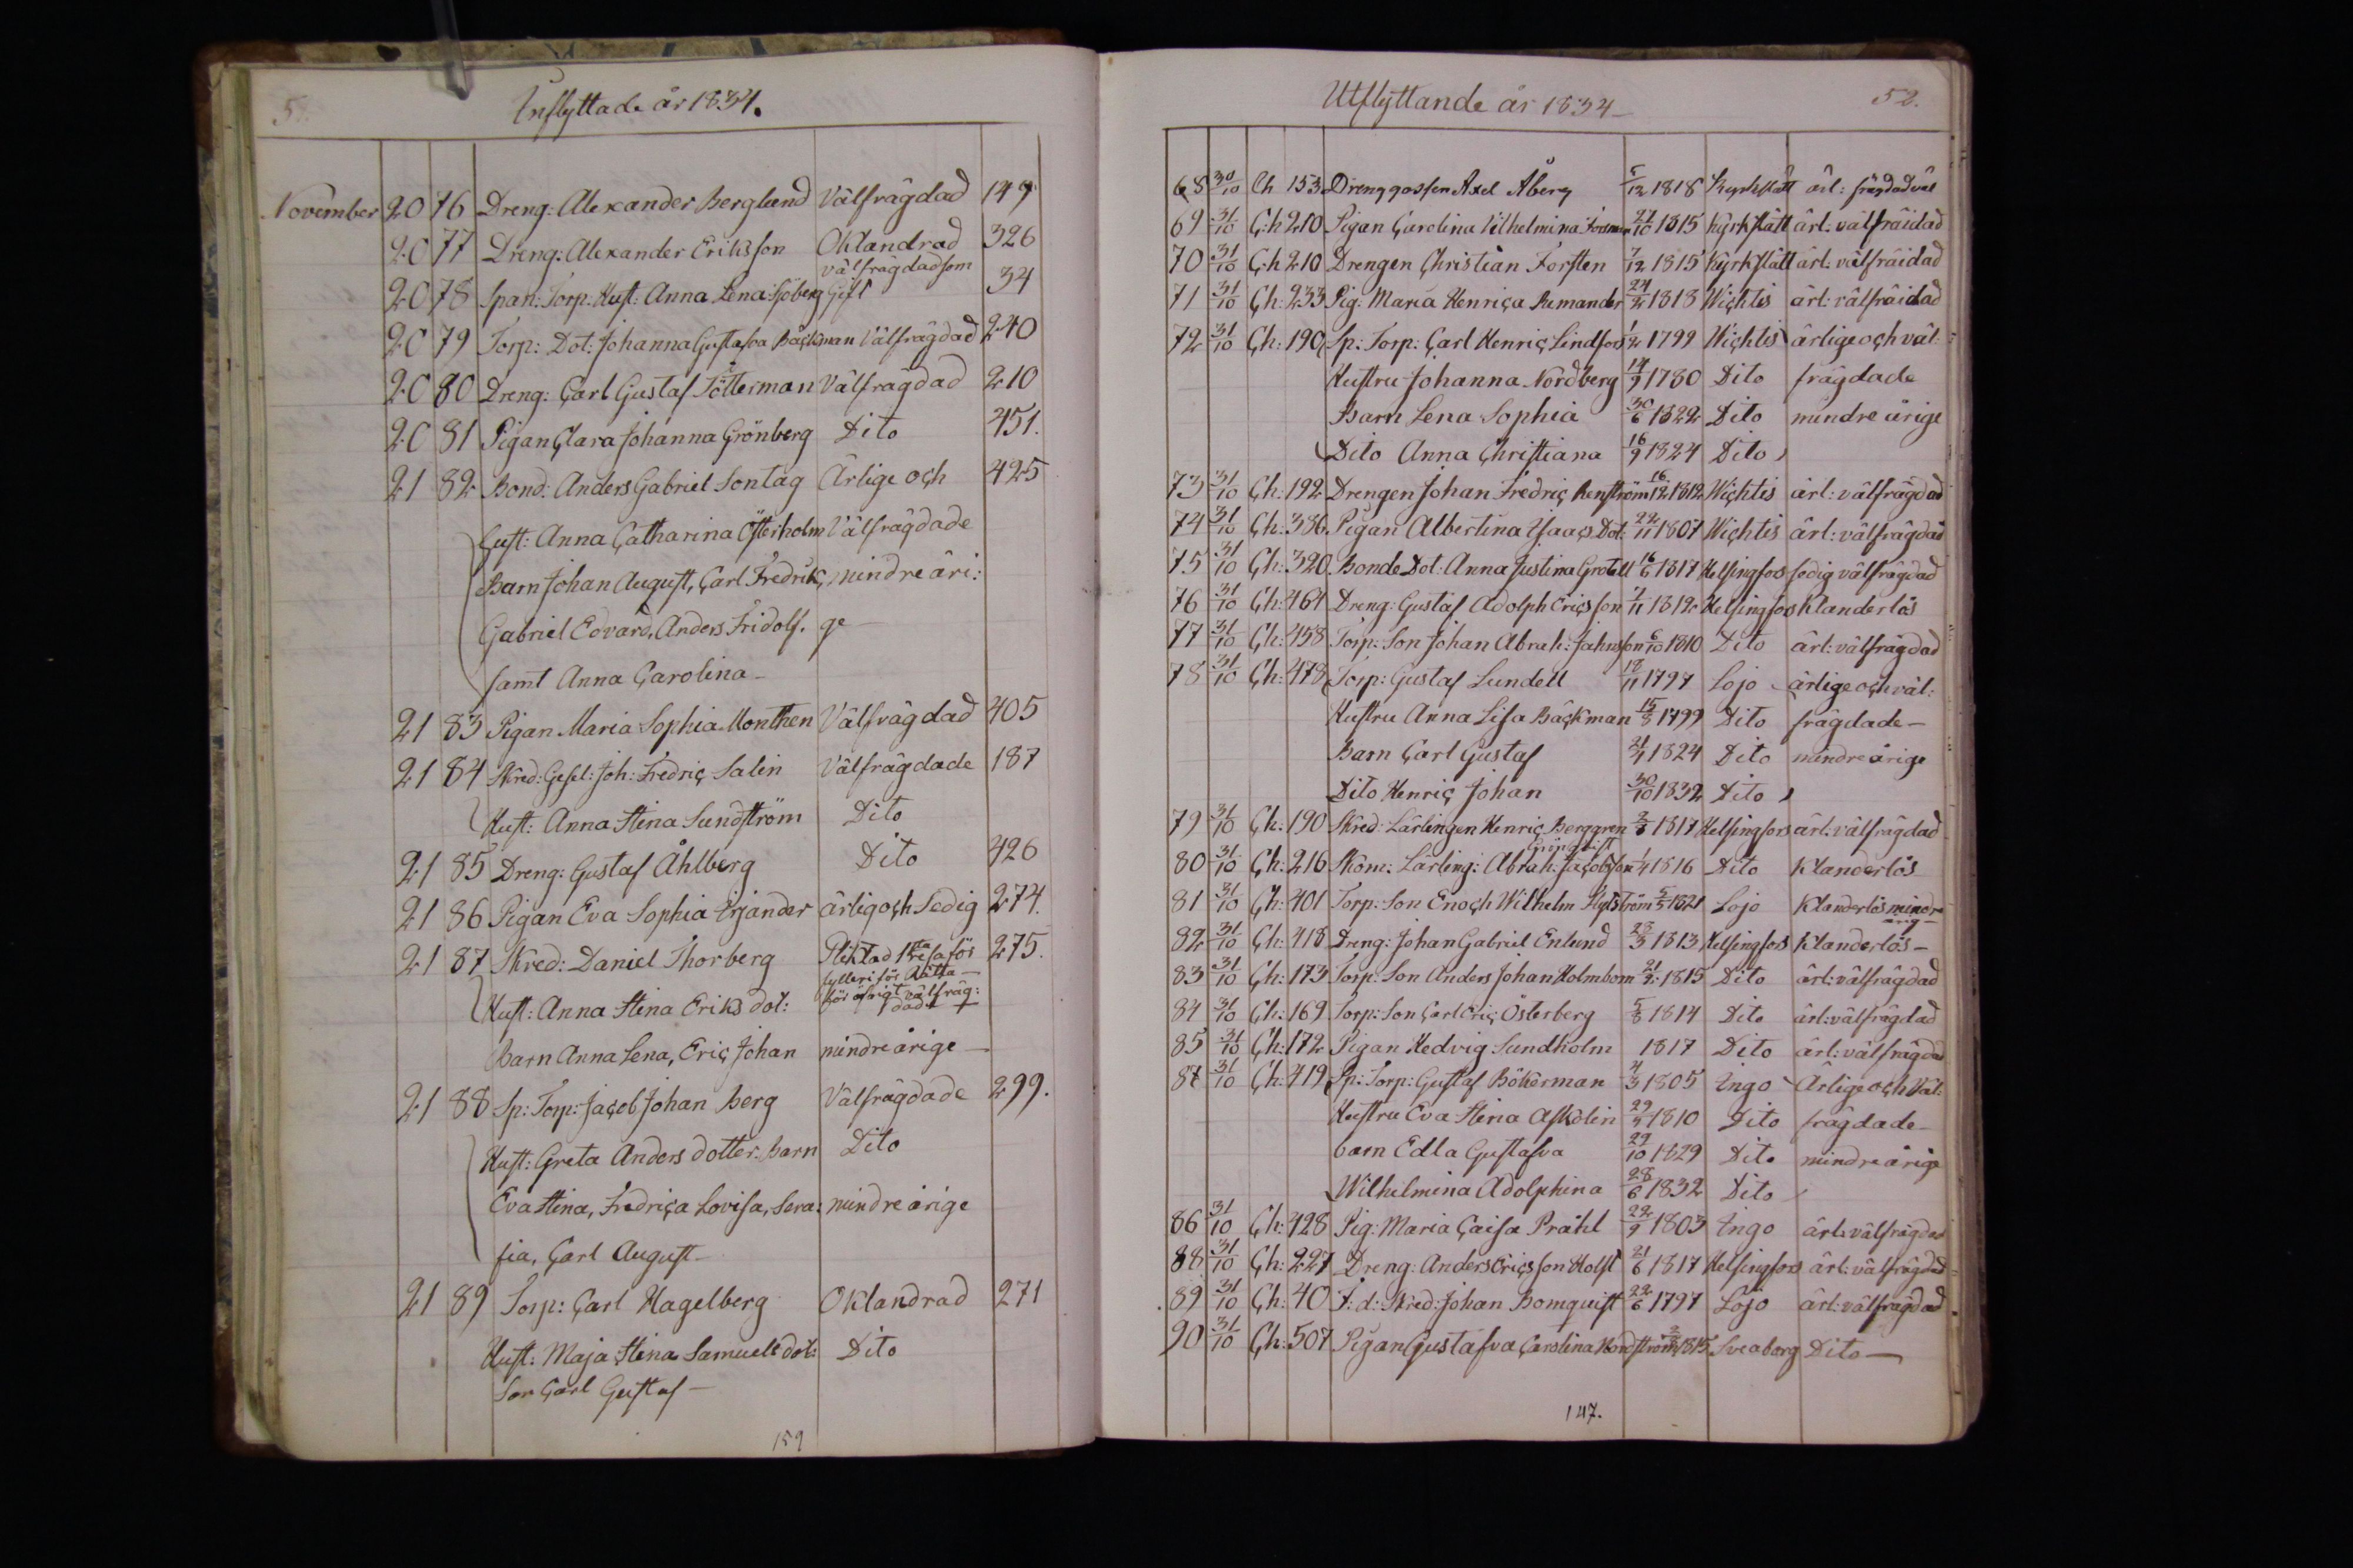 51.
Inflyttade år 1834.
November 20 76 Dreng: Alexander Berglund Välfrägdad 149
20 77 Dreng: Alexander Eriksson Oklandrad 326
välfrägdad som
20 78 Span: Torp. Hust: Anna Lena Sjöberg Gift 34
20 79 Torp: Dot: Johanna Gustafva Bäckman Välfrägdad 240
20 80 Dreng: Carl Gustaf Tötterman Välfrägdad 210
20 81 Pigan Clara Johanna Grönberg Dito 451.
21 82 Bond: Anders Gabriel Sontag Ärlige och 425
Hust: Anna Catharina Österholm Välfrägdade
Barn Johan August, Carl Fredrik, mindre åri:
Gabriel Edvard, Anders Fridolf. ge
samt Anna Carolina
21 83 Pigan Maria Sophia Monthen Välfrägdad 405
21 84 Skred: Gesel: Joh: Fredric Salin Välfrägdade 187
Hust: Anna Stina Sundström Dito
21 85 Dreng: Gustaf Åhlberg Dito 426
21 86 Pigan Eva Sophia ärlig och Sedig 274.
21 87 Skred: Daniel Thorberg Pliktad för 275.
fylleri för
Hust: Anna Stina Eriks dot: för öfrigt välfräg:
dad
Barn Anna Lena, Eric Johan mindre årige
21 88 Sp: Torp: Jacob Johan Berg Välfrägdade 299.
Hust: Greta Anders dotter. Barn Dito
Eva Stina, Fredrica Lovisa, Sera: mindre årige
fia, Carl August
21 89 Torp: Carl Hagelberg Oklandrad 271
Hust: Maja Stina Samuels dot: Dito
Son Carl Gustaf
159
Utflyttande år 1834
52.
68 30/10 Ch 153 Drenggossen Axel Åberg 5/12 1818 Kyrkslätt ärl: frägdad väl
69 31/10 Ch 210 Pigan Carolina Vilhelmina 1815 Kyrkslätt ärl. välfräidad
70 31/10 Ch 210 Drengen Christian Forsten 7/12 1815 Kyrkslätt ärl: välfräidad
71 31/10 Ch: 233 Pig: Maria Henrica Remander 24/2 1813 Wichtis ärl: välfräidad
72 31/10 Ch: 190 Sp: Torp: Carl Henric Lindfors 1/2 1799 Wichtis ärlige och väl:
Hustru Johanna Nordberg 14/9 1780 Dito frägdade
Barn Lena Sophia 30/6 1822 Dito mindre årige
Dito Anna Christiana 16/9 1824 Dito
73 31/10 Ch: 192 Drengen Johan Fredric Renström 16/12 1812 Wichtis ärl: välfrägdad
74 31/10 Ch: 386 Pigan Albertina Isaacs Dot: 22/11 1807 Wichtis ärl: välfrägdad
75 31/10 Ch: 320 Bonde Dot: Anna Justina Grotell 16/6 1817 Helsingfors sedig välfrägdad
76 31/10 Ch: 461 Dreng: Gustaf Adolph Ericsson 7/11 1812 Helsingfors Klanderlös
77 31/10 Ch: 458 Torp: Son Johan Abrah: Jahnsson 6/10 1810 Dito ärl: välfrägdad
78 31/10 Ch: 478 Torp: Gustaf Lundell 18/11 1797 Lojo ärlige och väl:
Hustru Anna Lisa Bäckman 15/3 1799 Dito frägdade
Barn Carl Gustaf 21/4 1824 Dito mindre årige
Dito Henric Johan 30/10 1832 Dito
79 31/10 Ch: 190 Skred: Lärlingen Henric Berggren 2/8 1817 Helsingfors ärl: välfrägdad
Grönqvist
80 31/10 Ch: 216 Skom: Lärling: Abrah: Jacobsson 1/4 1816 Dito Klanderlös
81 31/10 Ch: 401 Torp: Son Enoch Wilhelm 5/5 1821 Lojo Klanderlös mindre
årig
82 31/10 Ch: 418 Dreng: Johan Gabriel Enlund 28/3 1813 Helsingfors Klanderlös
83 31/10 Ch: 173 Torp: Son Anders Johan Holmbom 21/2 1815 Dito ärl: välfrägdad
84 31/10 Ch: 169 Torp: Son Carl Eric Österberg 5/8 1814 Dito ärl: välfrägdad
85 31/10 Ch: 172 Pigan Hedvig Sundholm 1817 Dito ärl: välfrägdad
87 31/10 Ch: 419 Sp: Torp: Gustaf Bökerman 4/3 1805 Ingo Ärlige och Väl:
Hustru Eva Stina Askolin 29/4 1810 Dito frägdade
barn Edla Gustafva 29/10 1829 Dito mindre årige
Wilhelmina Adolphina 28/6 1832 Dito
86 31/10 Ch: 428 Pig: Maria Caisa Prähl 22/9 1803 Ingo ärl: välfrägdad
88 31/10 Ch: 227 Dreng: Anders Ericsson Holst 21/6 1817 Helsingfors ärl: välfrägdad
89 31/10 Ch: 40 F: d: Skred: Johan Bomquist 22/6 1797 Lojo ärl: välfrägdad
90 31/10 Ch: 507 Pigan Gustafva Carolina Nordström 1815 Sveaborg Dito
147.